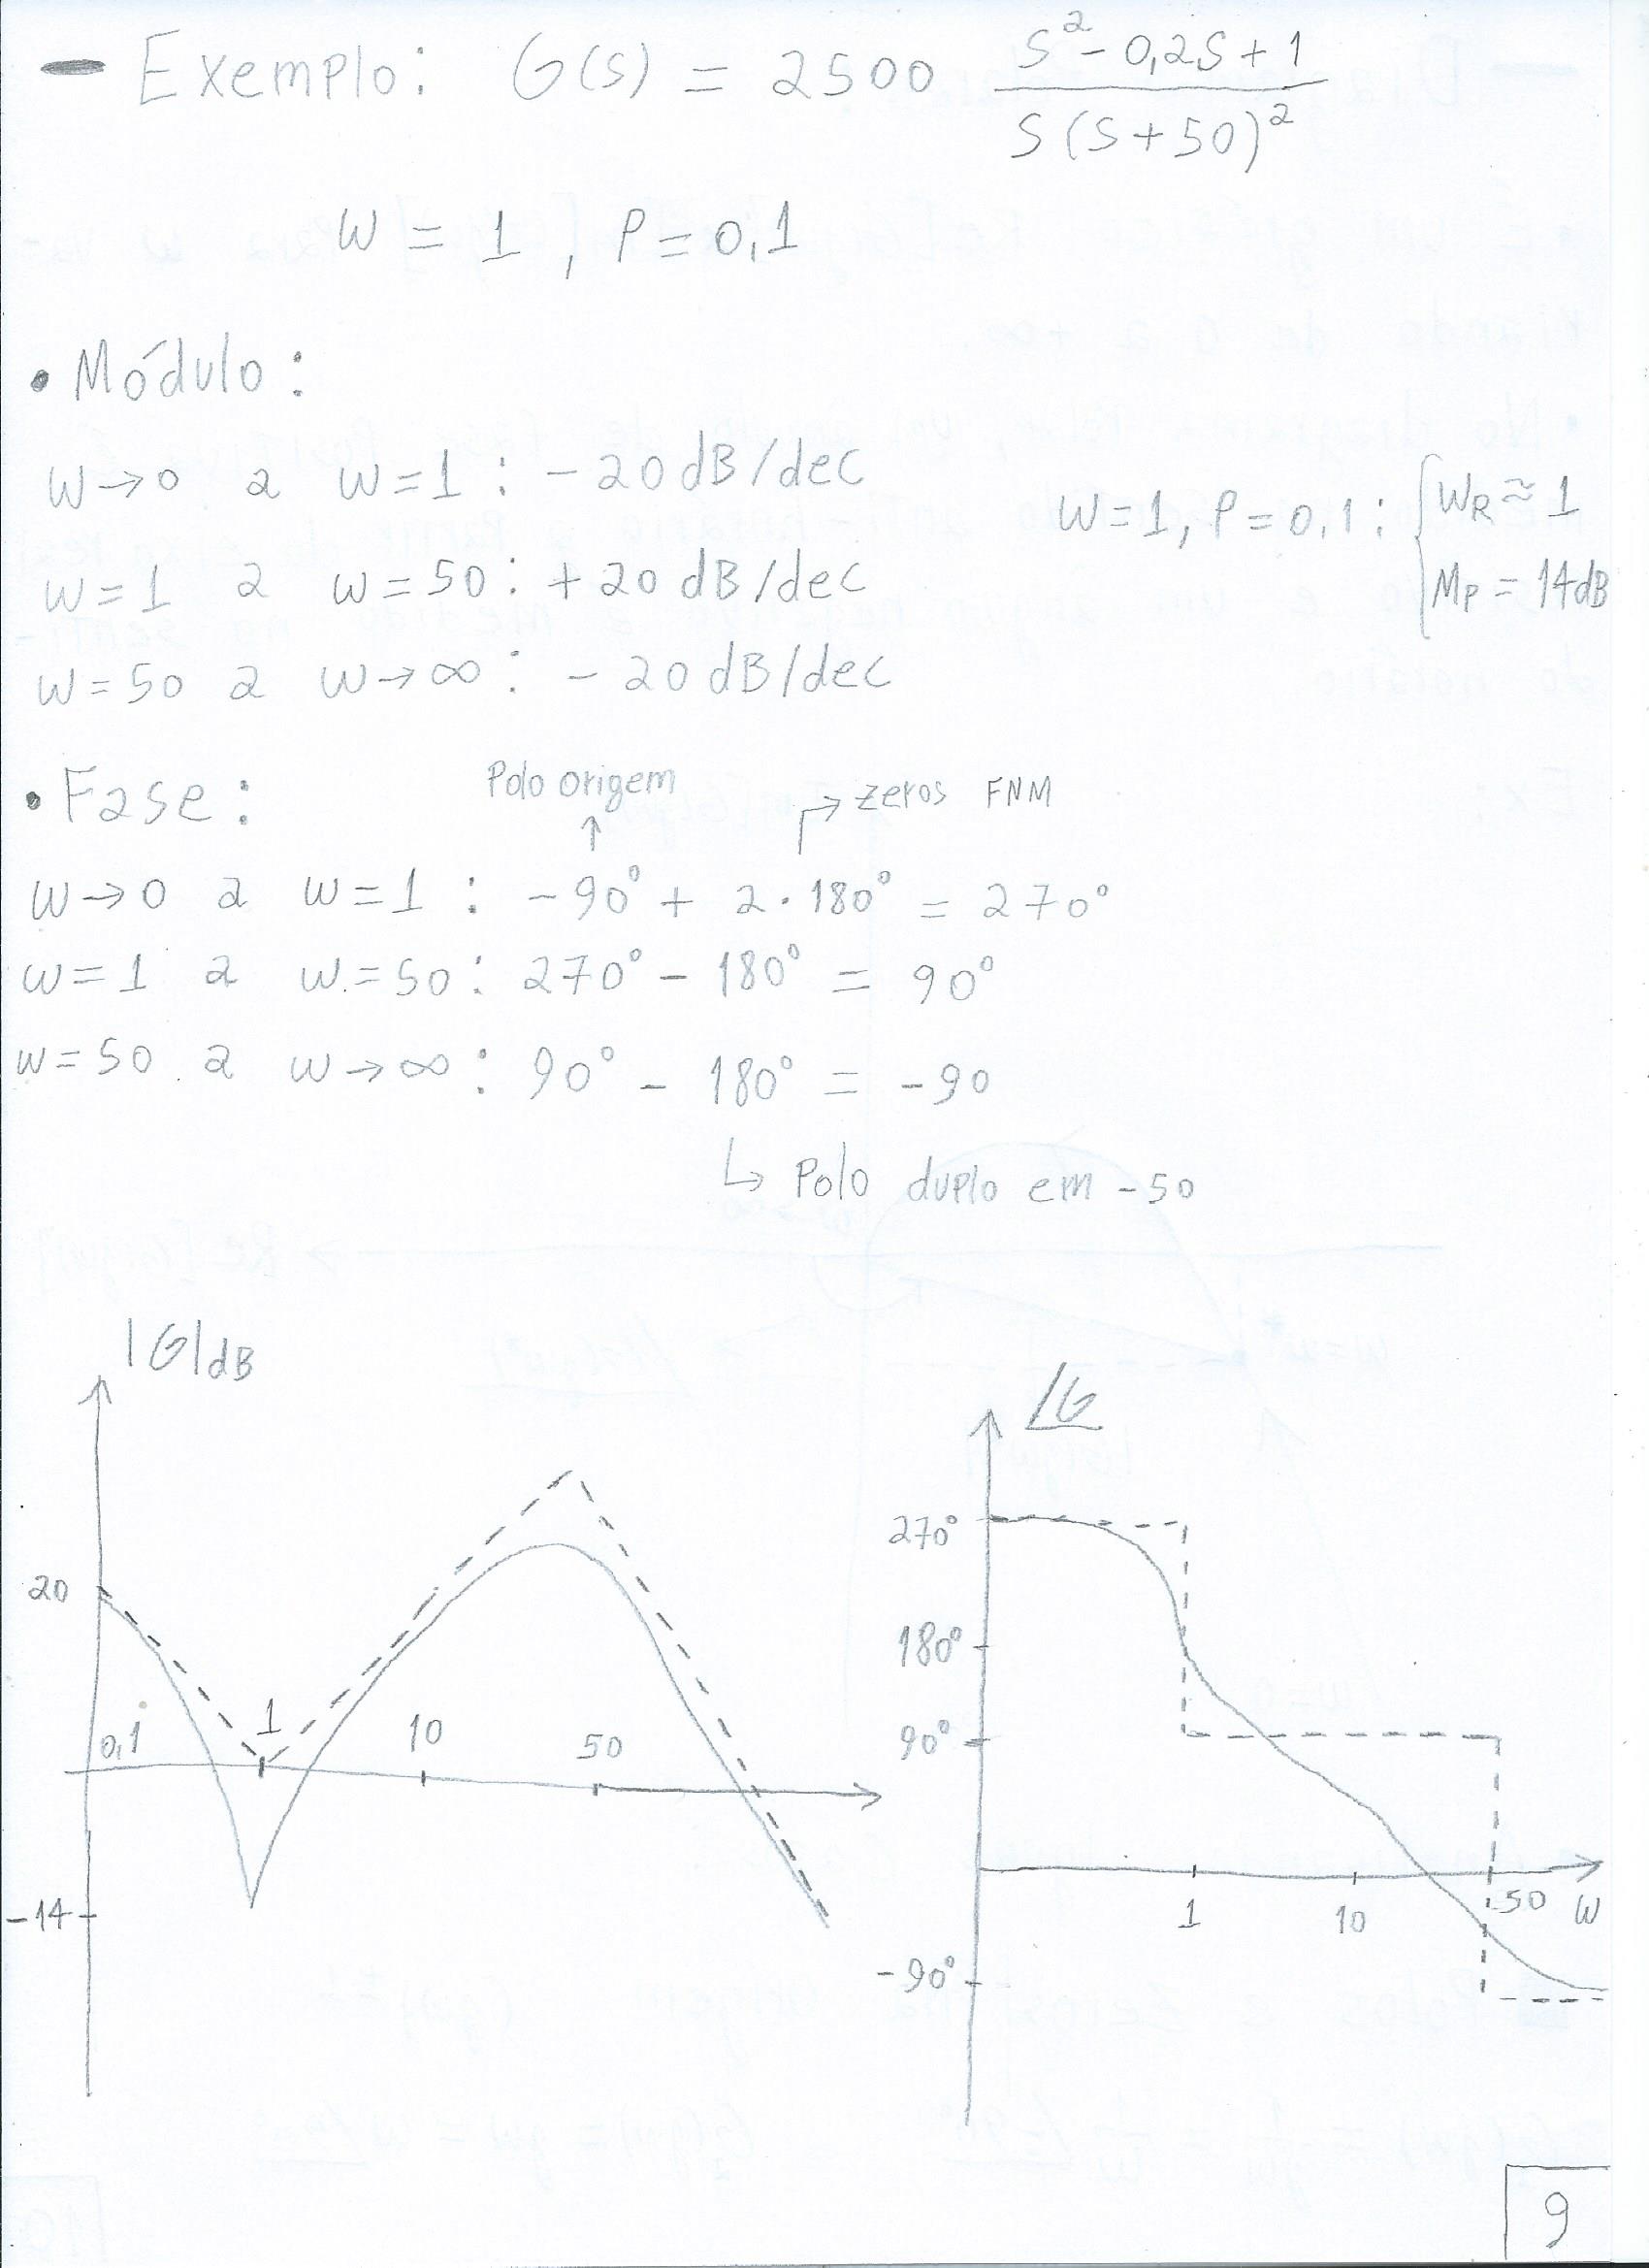 — Exemplo: G(s) = 2500 (s² - 0,2s + 1) / (s(s+50)²)
w = 1, ρ = 0,1
• Módulo:
w→0 a w=1: -20 dB/dec
w=1 a w=50: +20 dB/dec
w=50 a w→∞: -20 dB/dec
w=1, ρ=0,1: { wR ≈ 1
Mp = 14dB
• Fase:
Polo origem
↑
↱ zeros FNM
w→0 a w=1: -90° + 2·180° = 270°
w=1 a w=50: 270° - 180° = 90°
w=50 a w→∞: 90° - 180° = -90
↳ Polo duplo em -50
|G|dB
20
0,1
1
10
50
-14
∠G
270°
180°
90°
-90°
1
10
50
w
9